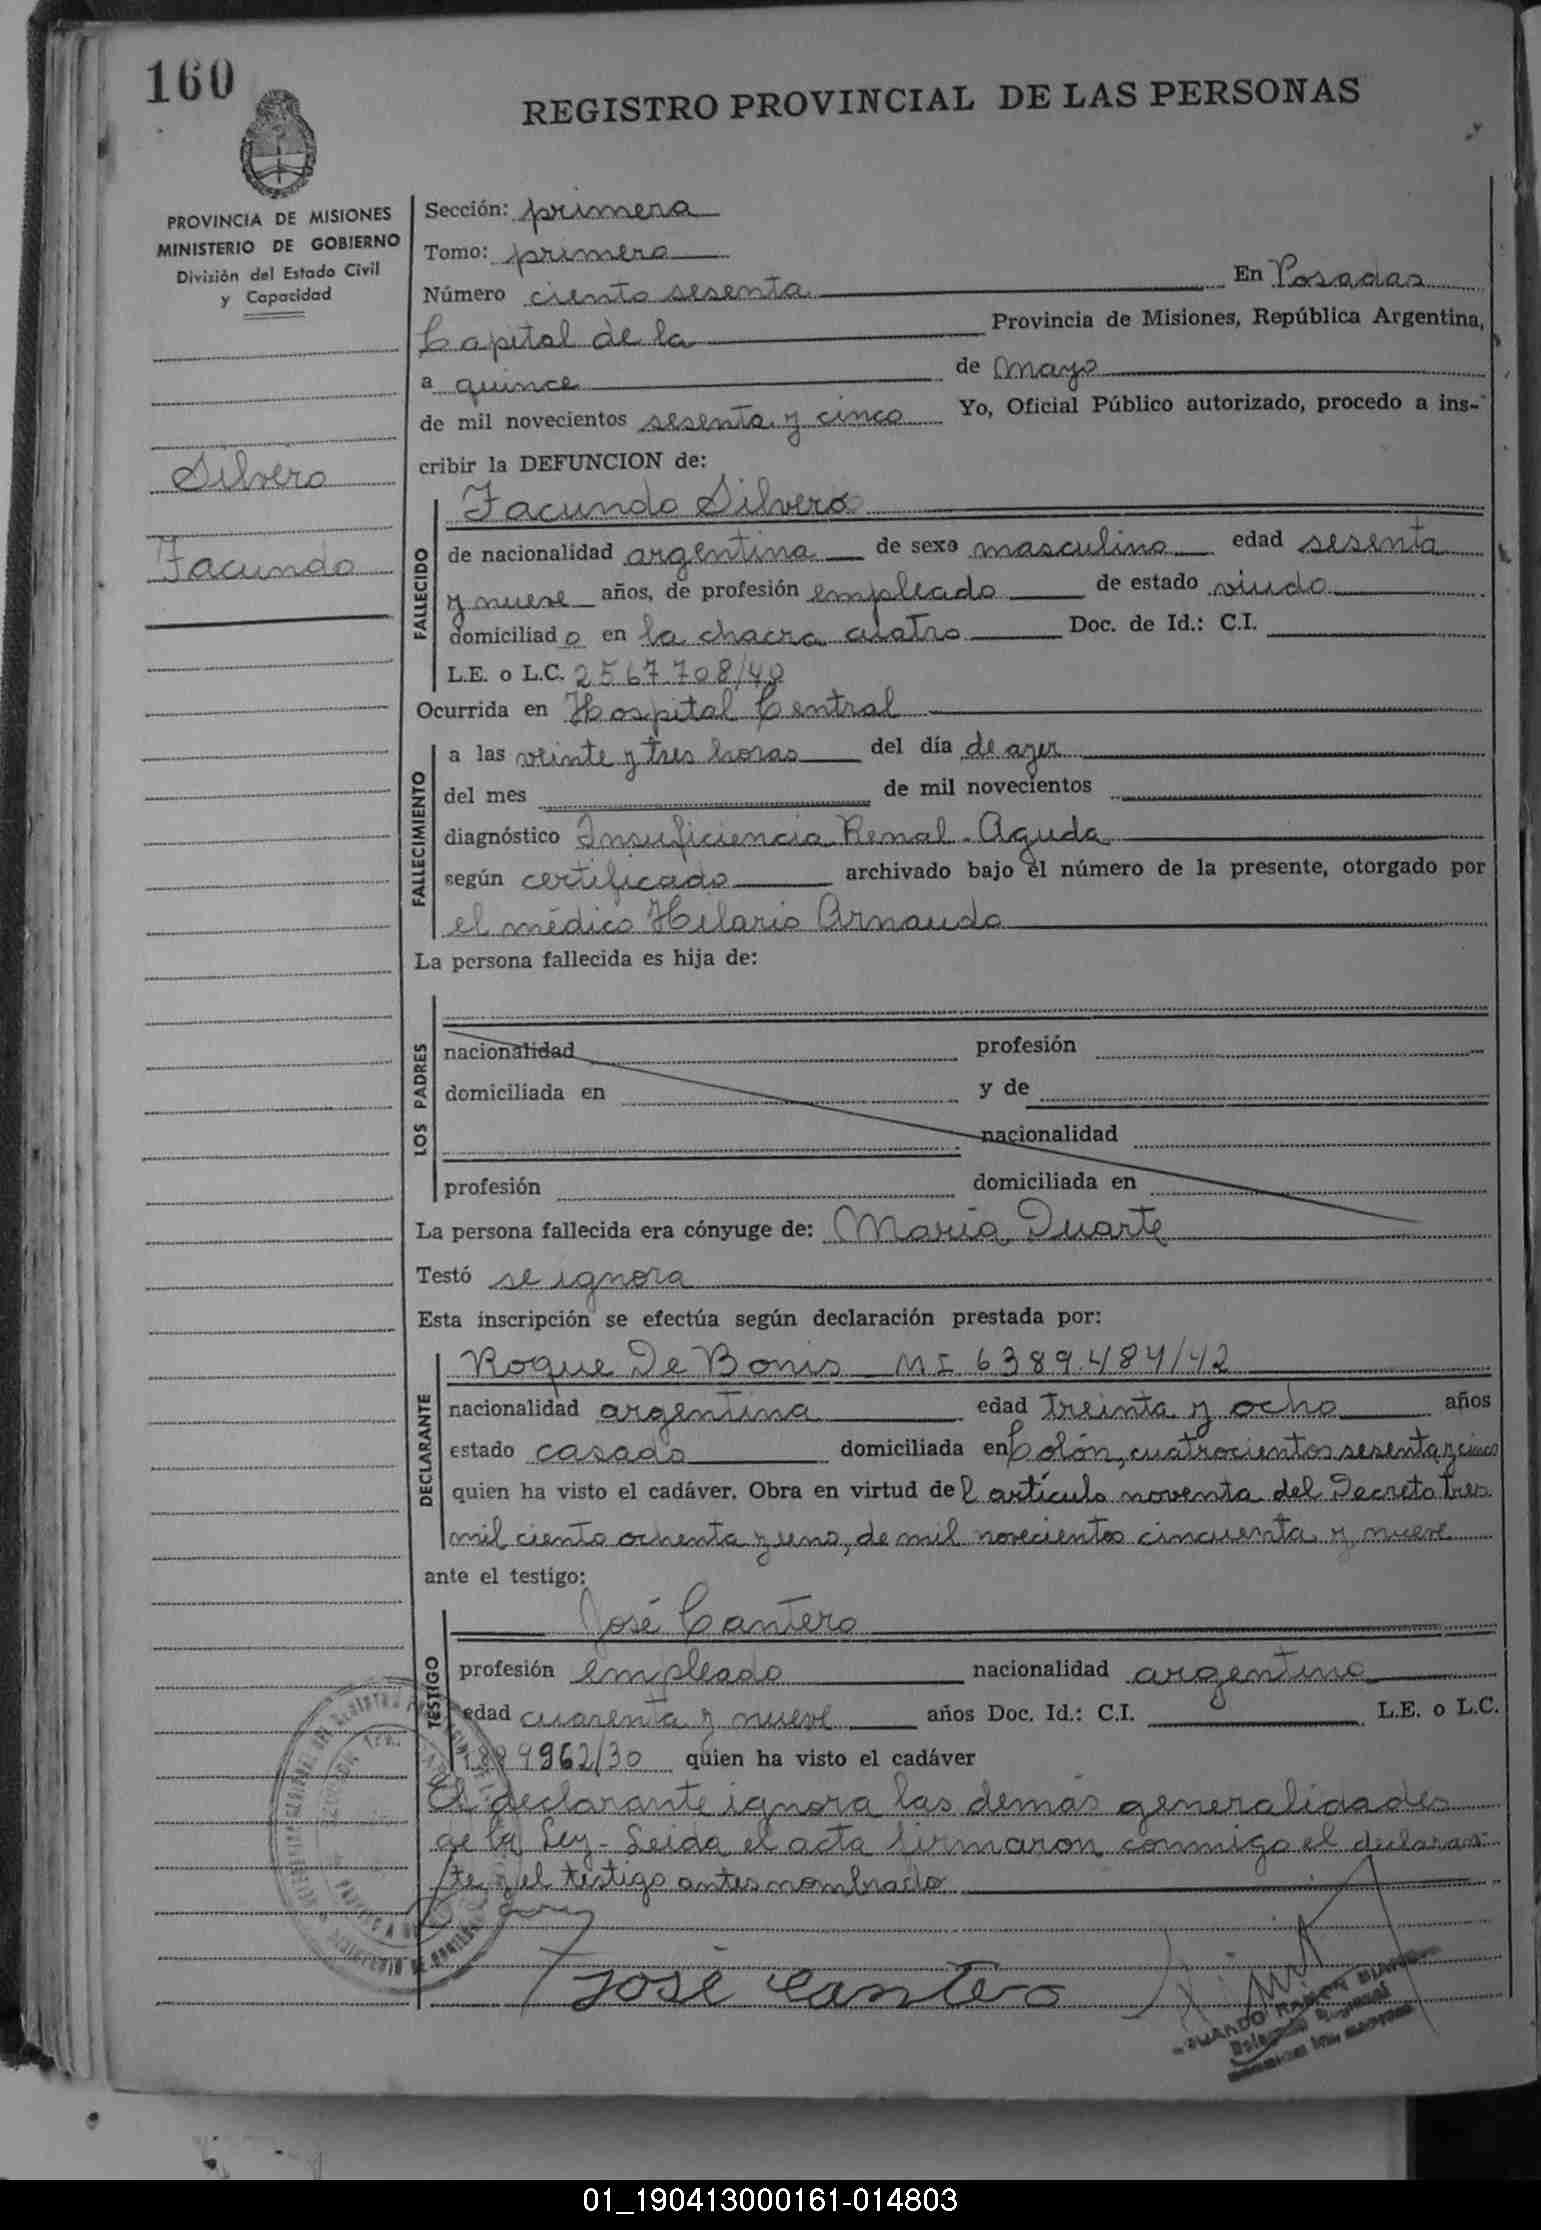 160
REGISTRO PROVINCIAL DE LAS PERSONAS
PROVINCIA DE MISIONES
MINISTERIO DE GOBIERNO
División del Estado Civil
y Capacidad
Silvero
Facundo
Sección: primera
Tomo: primero
Número ciento sesenta En Posadas
Capital de la Provincia de Misiones, República Argentina,
a quince de Mayo
de mil novecientos sesenta y cinco Yo, Oficial Público autorizado, procedo a ins-
cribir la DEFUNCION de:
FALLECIDO
Facundo Silvero
de nacionalidad argentina de sexo masculino edad sesenta
y nueve años, de profesión empleado de estado viudo
domiciliado en la chacra cuatro Doc. de Id.: C.I.
L.E. o L.C. 2567708/40
Ocurrida en Hospital Central
FALLECIMIENTO
a las veinte y tres horas del día de ayer
del mes de mil novecientos
diagnóstico Insuficiencia Renal-Aguda
según certificado archivado bajo el número de la presente, otorgado por
el médico Hilario Arnaudo
La persona fallecida es hija de:
LOS PADRES
nacionalidad profesión
domiciliada en y de
nacionalidad
profesión domiciliada en
La persona fallecida era cónyuge de: María Duarte
Testó se ignora
Esta inscripción se efectúa según declaración prestada por:
DECLARANTE
Roque De Bonis MI 6389.484/42
nacionalidad argentina edad treinta y ocho años
estado casado domiciliada en Colón, cuatrocientos sesenta y cinco
quien ha visto el cadáver. Obra en virtud del artículo noventa del Decreto tres
mil ciento ochenta y uno, de mil novecientos cincuenta y nueve
ante el testigo:
TESTIGO
José Cantero
profesión empleado nacionalidad argentino
edad cuarenta y nueve años Doc. Id.: C.I. L.E. o L.C.
9962/30 quien ha visto el cadáver
El declarante ignora las demás generalidades
de la Ley-Leida el acta firmaron conmigo el declaran-
te y el testigo antes nombrado
José Cantero
01_190413000161-014803